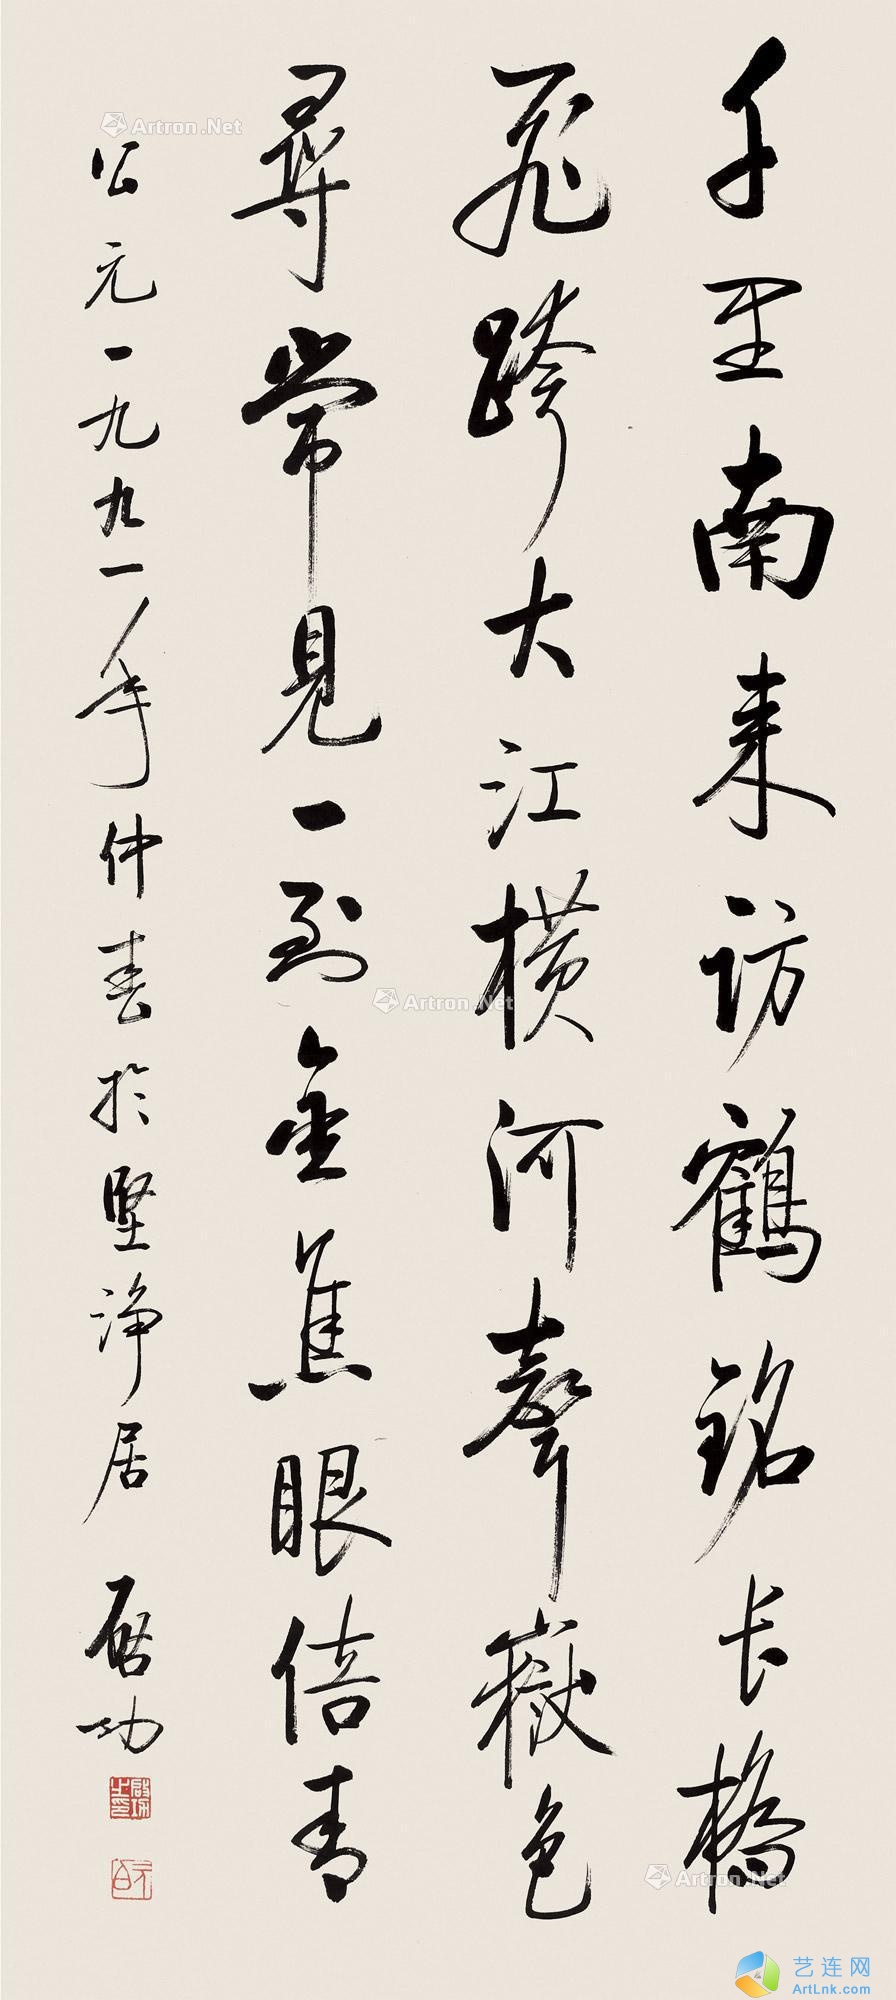 千里南来访鹤铭长桥
飞跨大江横河聲嶽色
尋常見一到金焦眼倍青
公元一九九一年仲春於堅净居
启功
啟功之印
元白
Artron.Net
Artron.Net
Artron.Net
艺连网
ArtLnk.com